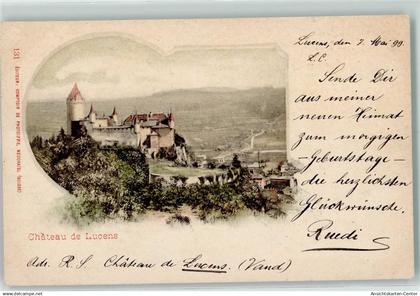 Lucens, den 7. Mai 99.
L. C.
Sende Dir
aus meiner
neuen Heimat
zum morgigen
-Geburtstage-
die herzlichsten
Glückwünsche.
Ruedi
131 ÉDITEUR: COMPTOIR DE PHOTOTYPIE, NEUCHATEL (SUISSE)
Château de Lucens
Adr. R. S. Château de Lucens. (Vaud)
www.ansichtskarten-center.de
Ansichtskarten-Center